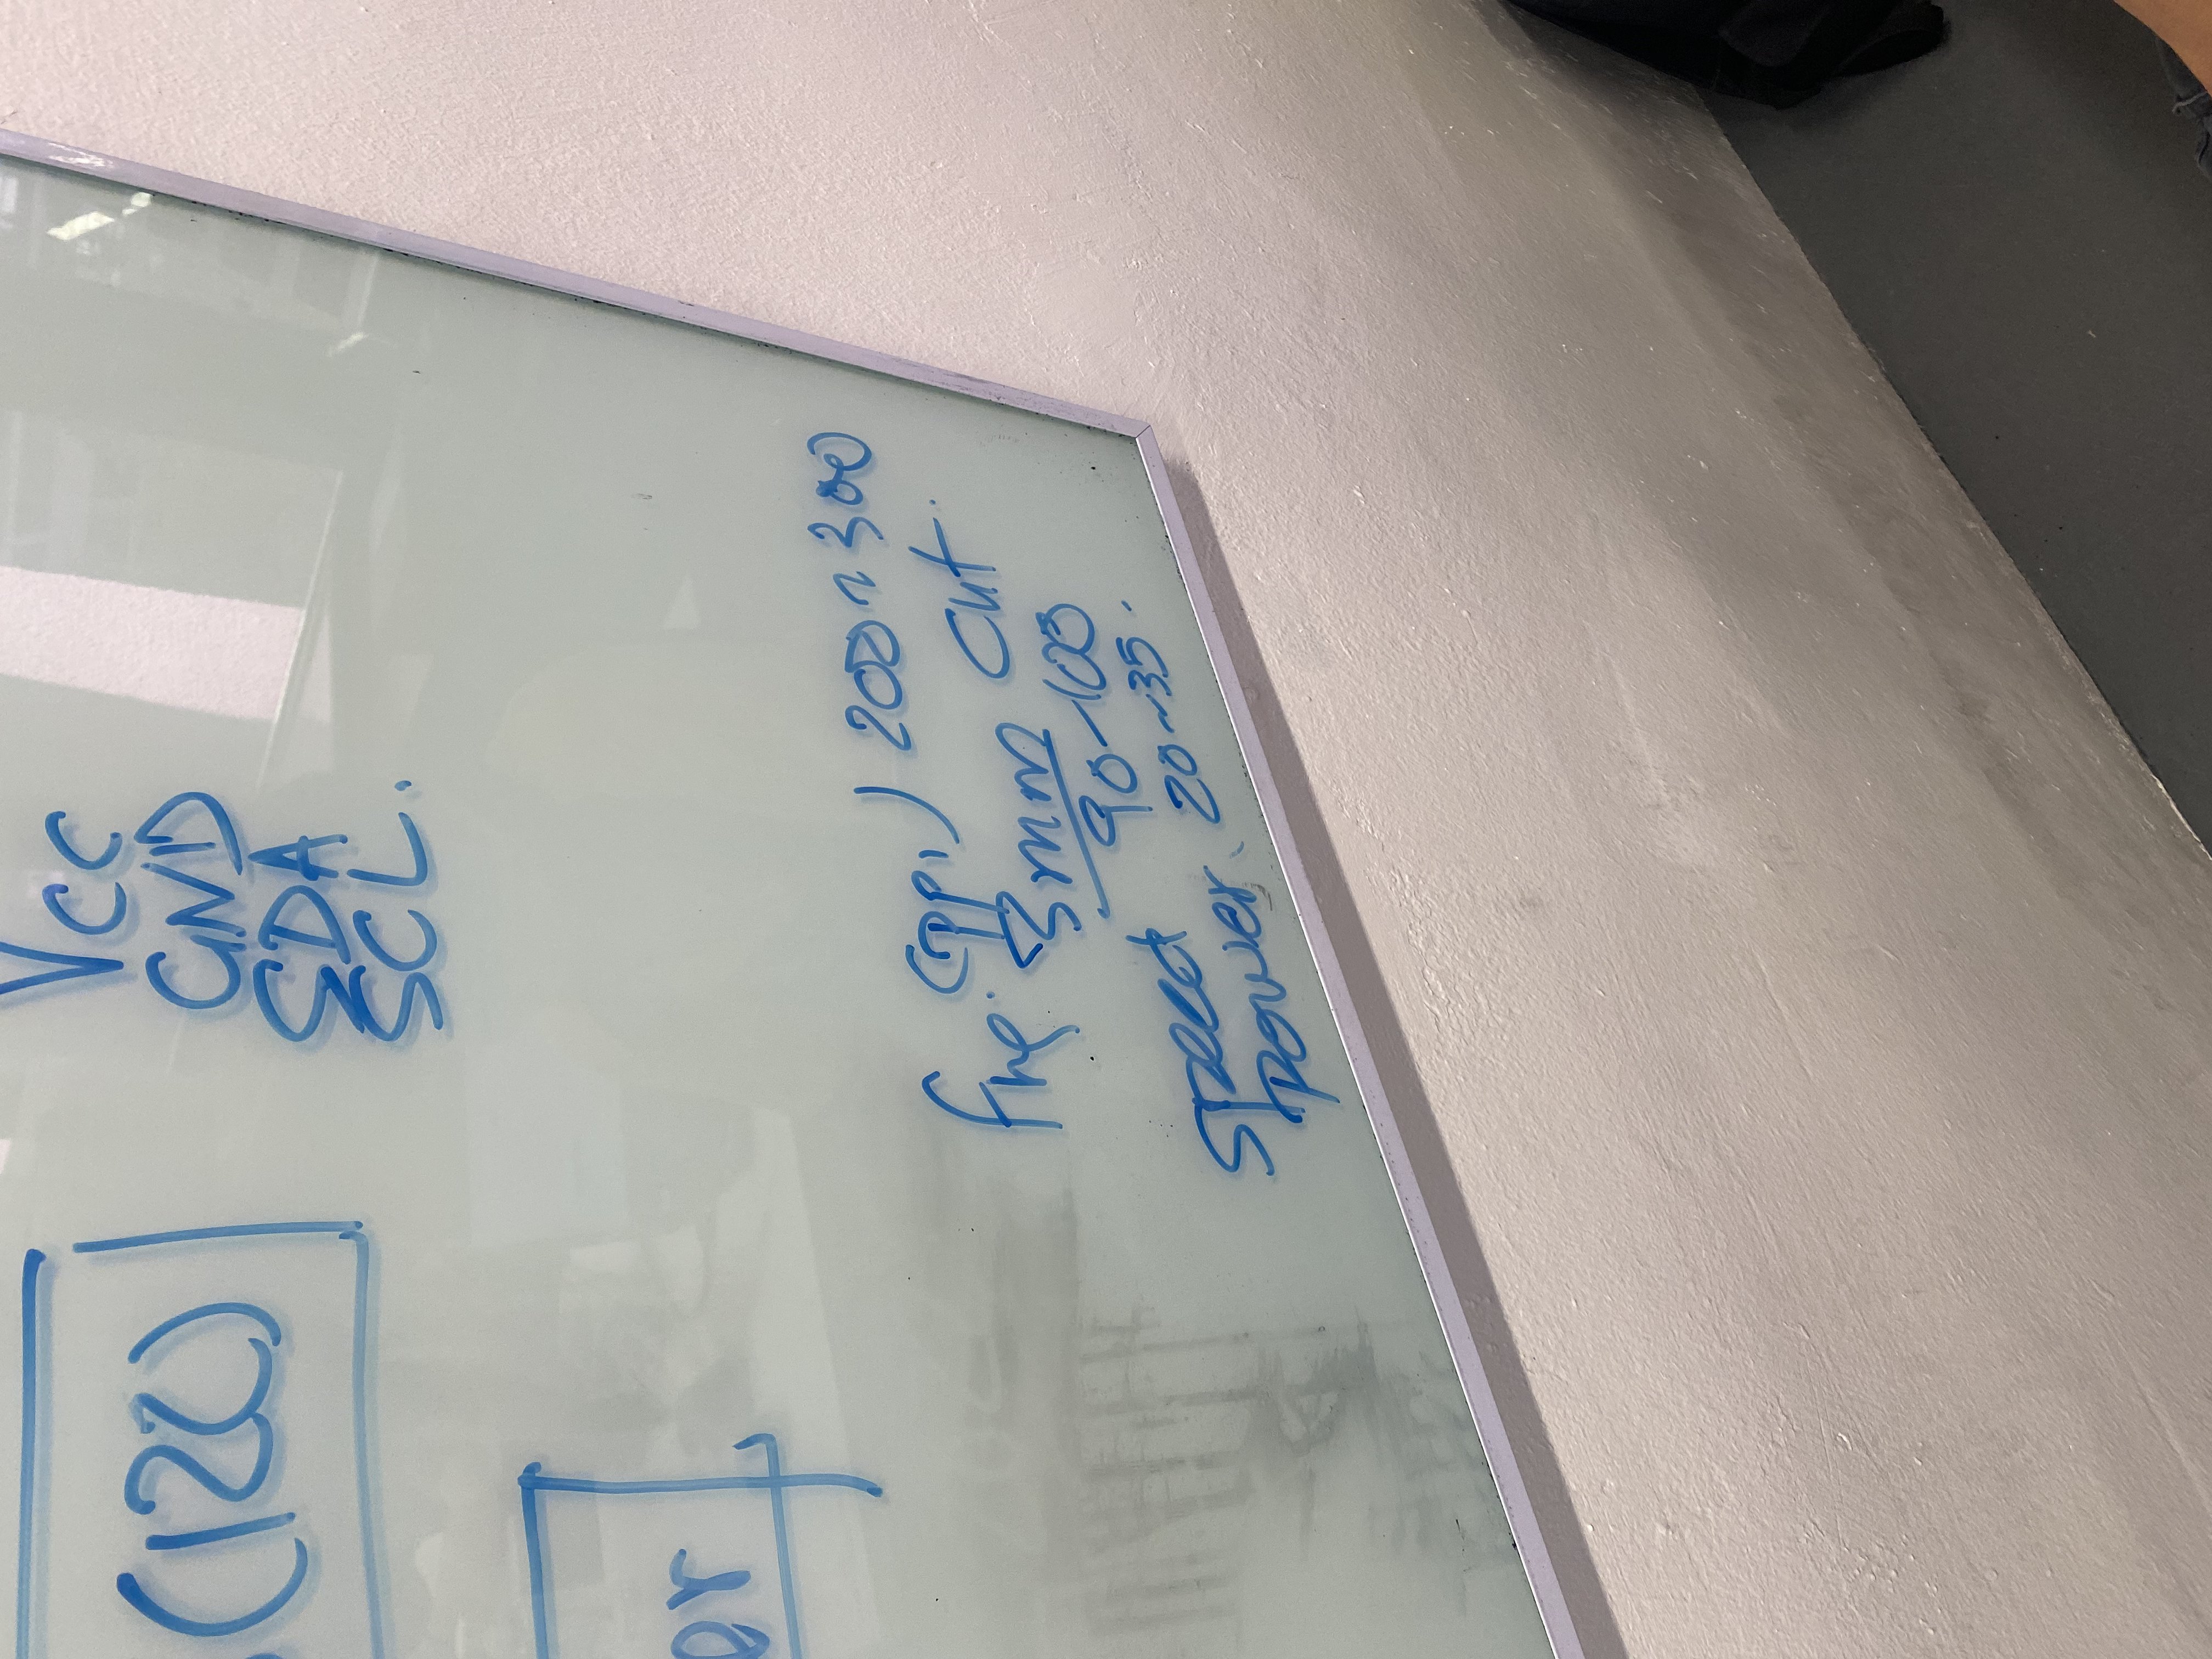 (I2C)
VCC
GND
SDA
SCL.
er
fre. (PPI) 200~300
3mm cut.
speed 90-100
power. 20~35.